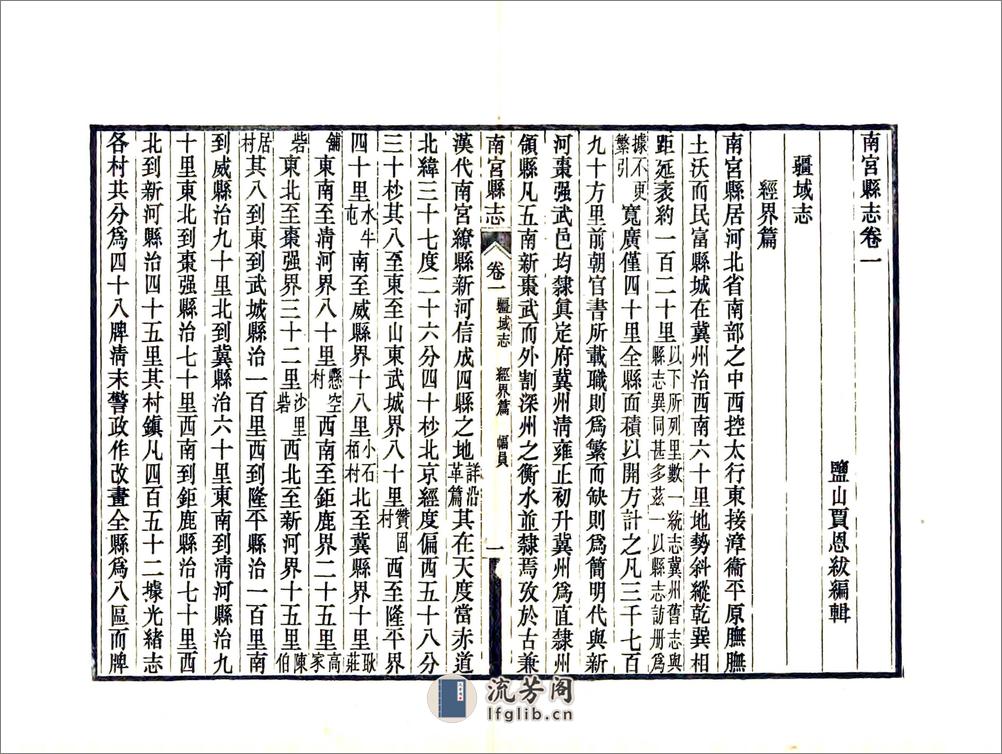 南宮縣志卷一
鹽山賈恩紱編輯
疆域志
經界篇
南宮縣居河北省南部之中西控太行東接漳衞平原膴膴
土沃而民富縣城在冀州治西南六十里地勢斜縱乾巽相
距延袤約一百二十里以下所列里數一統志冀州舊志與縣志異同甚多茲一以縣志訪册爲
據不更繁引寬廣僅四十里全縣面積以開方計之凡三千七百
九十方里前朝官書所載職則爲繁而缺則爲簡明代與新
河棗强武邑均隸眞定府冀州清雍正初升冀州爲直隸州
領縣凡五南新棗武而外割深州之衡水並隸焉攷於古兼
南宮縣志 卷一 疆域志 經界篇 幅員 一
漢代南宮繚縣新河信成四縣之地詳沿革篇其在天度當赤道
北緯三十七度二十六分四十秒北京經度偏西五十八分
三十秒其八至東至山東武城界八十里贊固村西至隆平界
四十里水牛屯南至威縣界十八里小石柏村北至冀縣界十里耿莊
舖東南至清河界八十里懸空村西南至鉅鹿界二十五里高家
砦東北至棗强界三十二里沙里砦西北至新河界十五里陳伯
居村其八到東到武城縣治一百里西到隆平縣治一百里南
到威縣治九十里北到冀縣治六十里東南到清河縣治九
十里東北到棗强縣治七十里西南到鉅鹿縣治七十里西
北到新河縣治四十五里其村鎮凡四百五十二據光緒志
各村共分爲四十八牌清末警政作改畫全縣爲八區而牌
流芳阁
lfglib.cn